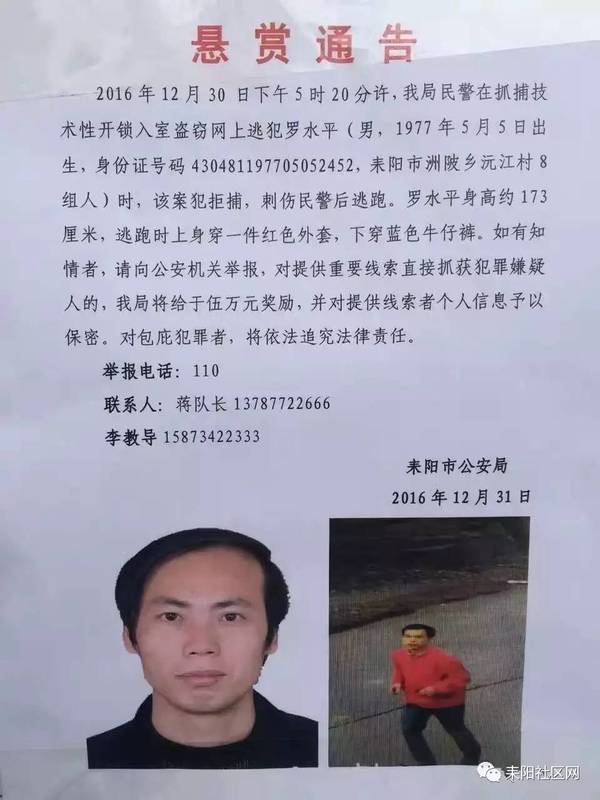 悬赏通告
2016 年 12 月 30 日下午 5 时 20 分许，我局民警在抓捕技
术性开锁入室盗窃网上逃犯罗水平（男，1977 年 5 月 5 日出
生，身份证号码 430481197705052452，耒阳市洲陂乡沅江村 8
组人）时，该案犯拒捕，刺伤民警后逃跑。罗水平身高约 173
厘米，逃跑时上身穿一件红色外套，下穿蓝色牛仔裤。如有知
情者，请向公安机关举报，对提供重要线索直接抓获犯罪嫌疑
人的，我局将给于伍万元奖励，并对提供线索者个人信息予以
保密。对包庇犯罪者，将依法追究法律责任。
举报电话：110
联系人：蒋队长 13787722666
李教导 15873422333
耒阳市公安局
2016 年 12 月 31 日
耒阳社区网